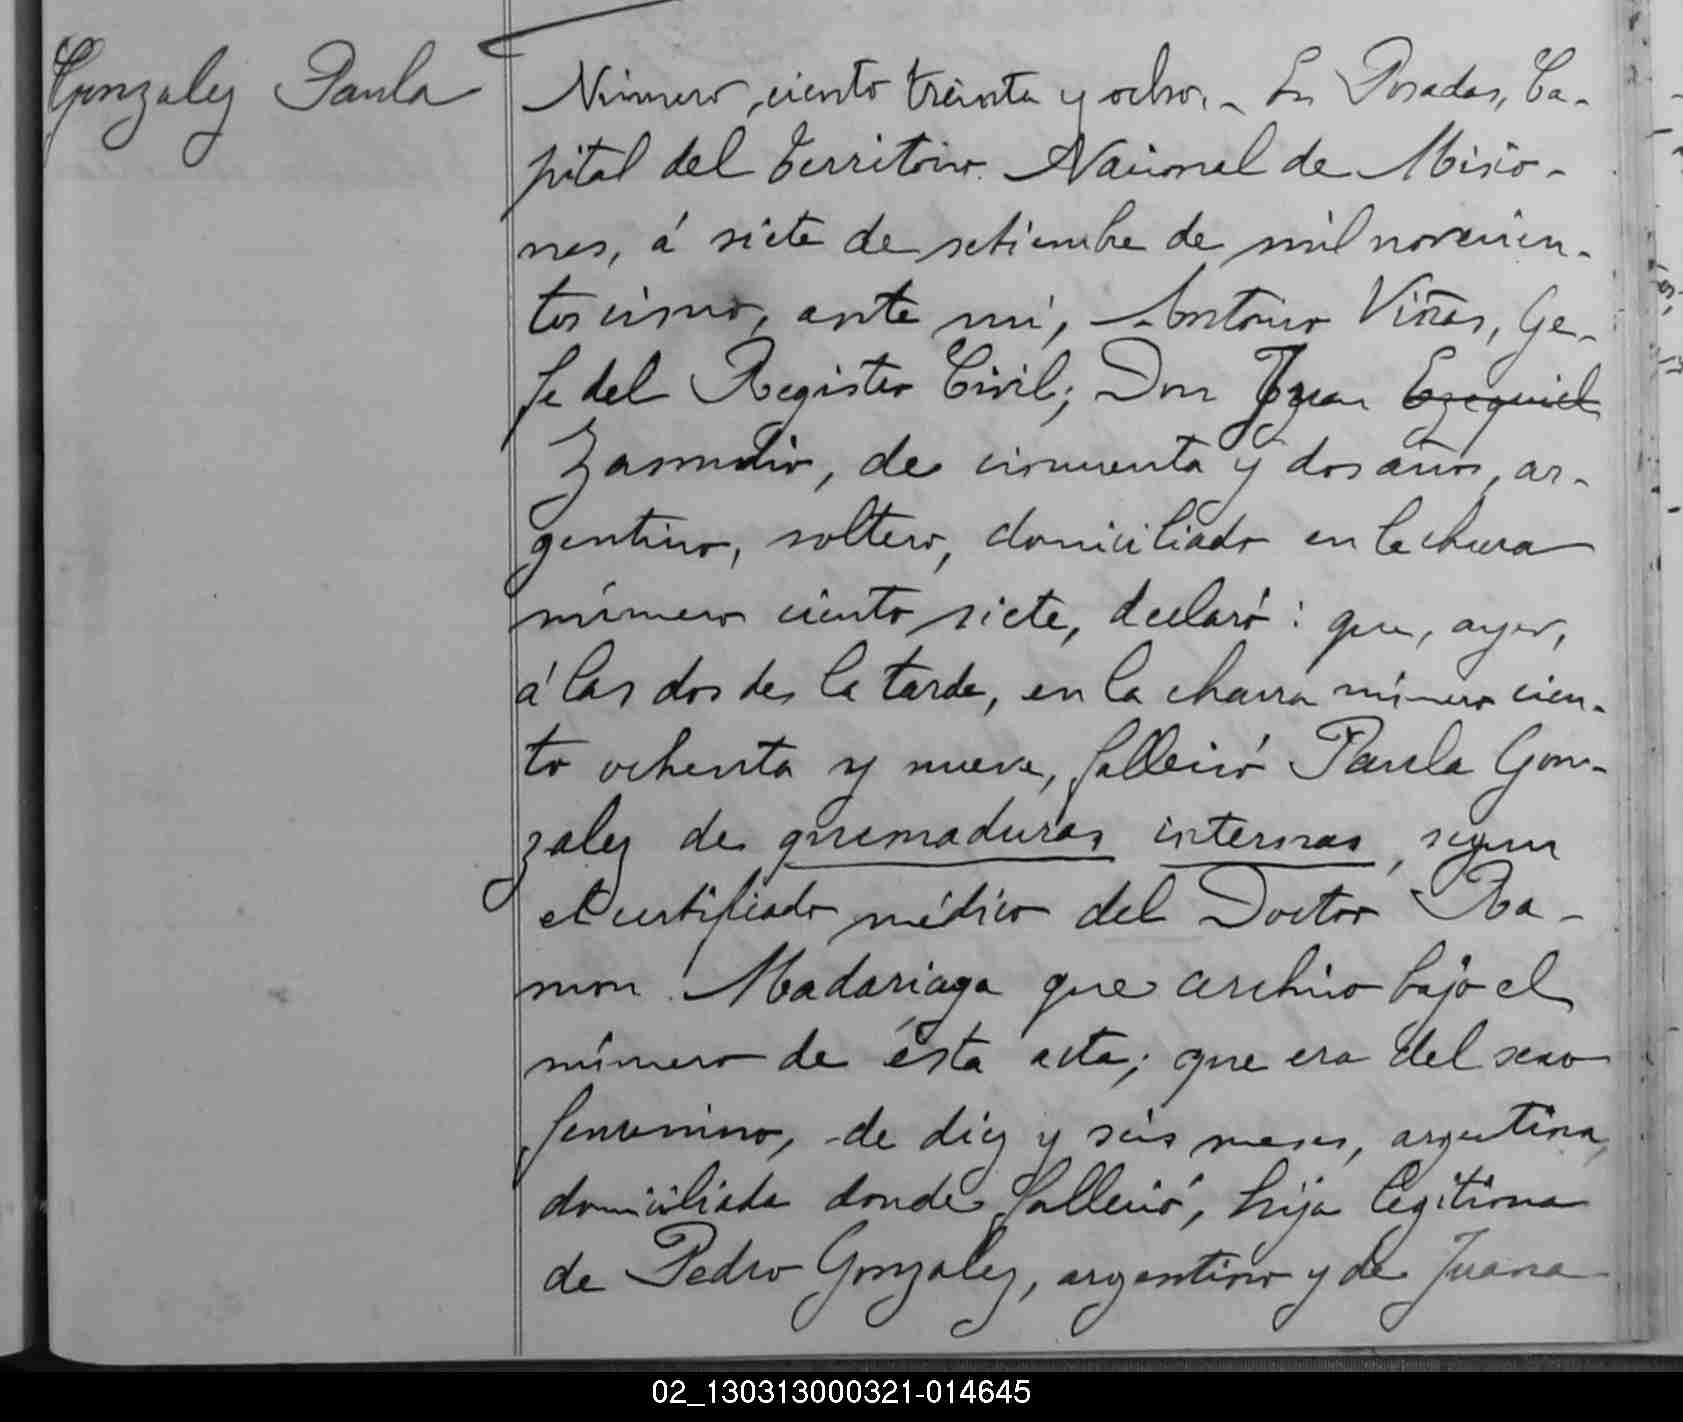 Gonzalez Paula
Número ciento treinta y ocho.- En Posadas, Ca-
pital del Territorio Nacional de Misio-
nes, á siete de setiembre de mil novecien-
tos cinco, ante mi, Antonio Viñas, Ge-
fe del Registro Civil; Don Juan Ezequiel
Zamudio, de cincuenta y dos años, ar-
gentino, soltero, domiciliado en la chacra
número ciento siete, declaró: que, ayer,
á las dos de la tarde, en la chacra número cien-
to ochenta y nueve, falleció Paula Gon-
zalez de quemaduras internas, segun
el certificado médico del Doctor Ra-
mon Madariaga que archivo bajo el
número de ésta acta; que era del sexo
femenino, de diez y seis meses, argentina,
domiciliada donde falleció, hija legitima
de Pedro Gonzalez, argentino y de Juana
02_130313000321-014645